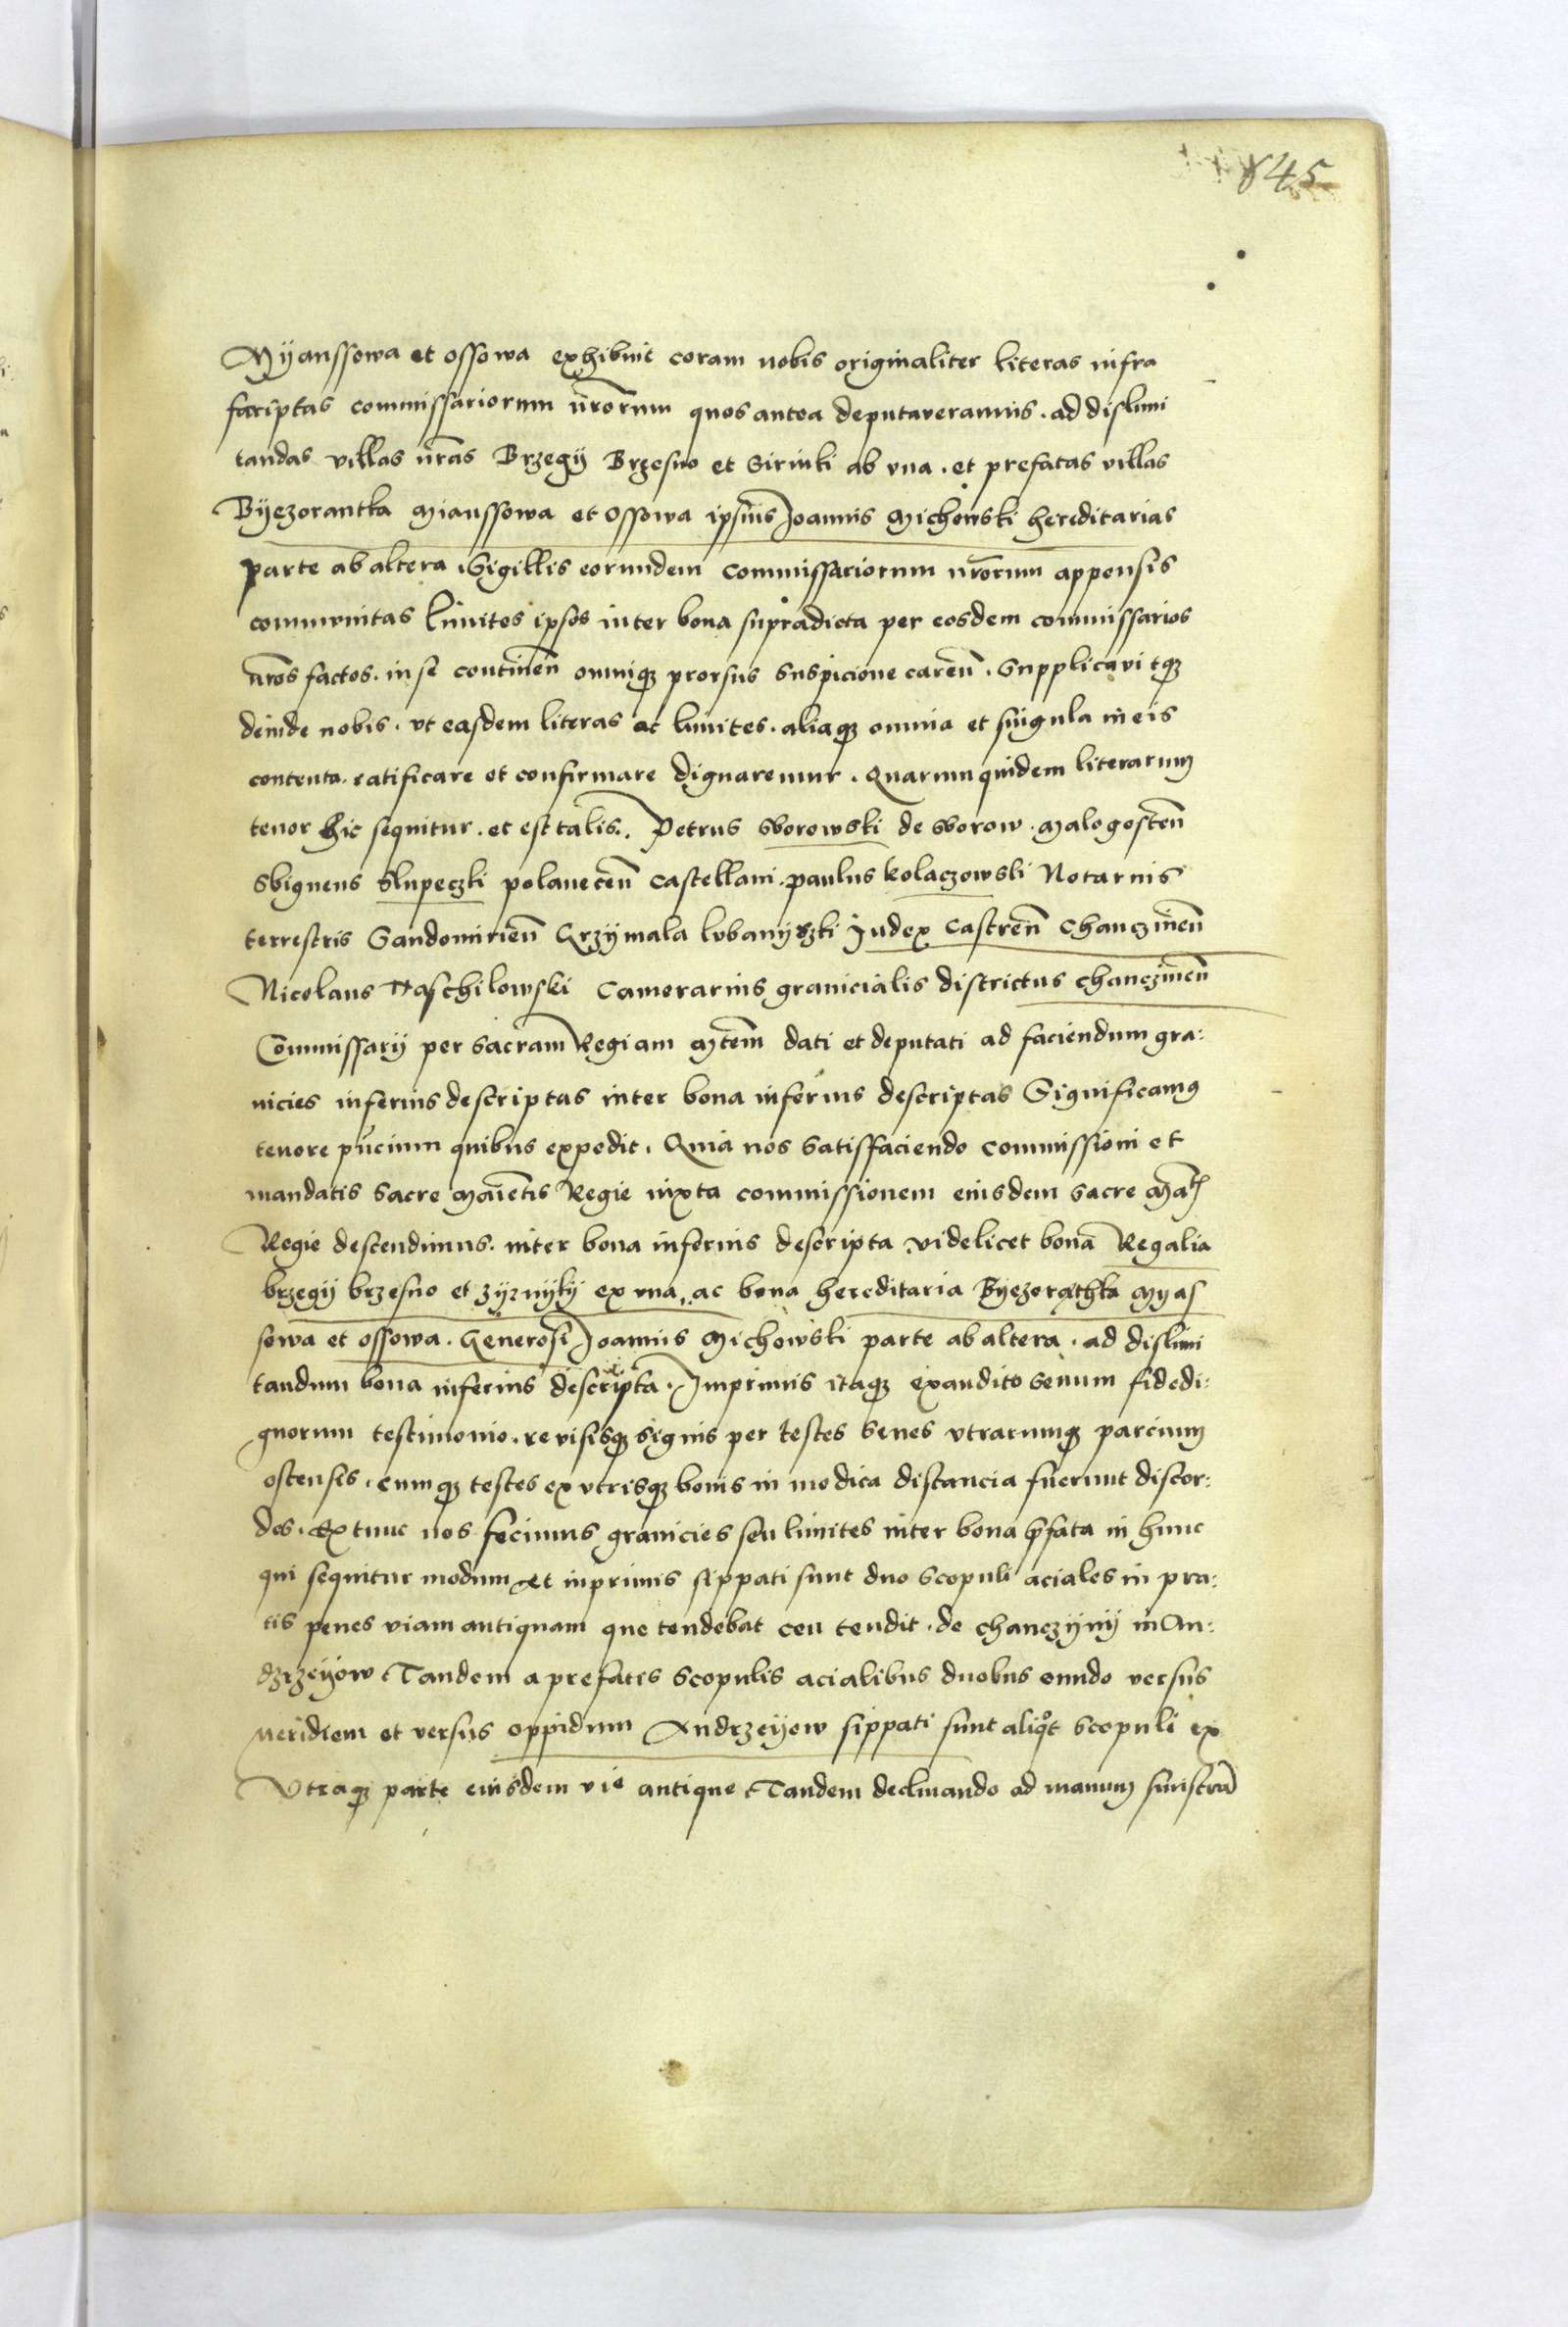 845
Myanssowa et ossowa exhibuit coram nobis originaliter literas infra
scriptas commissariorum nr̃orum quos antea deputaveramus . ad dislimi
tandas villas nr̃as Brzegÿ Brzesno et Sirinki ab vna . et prefatas villas
Bÿezorantka Mianssowa et Ossowa ipsius Joannis Michowski hereditarias
parte ab altera . Sigillis eorundem commissariorum nr̃orum appensis
communitas limites ipsos inter bona supradicta per eosdem commissarios
nr̃os factos . in se continen̄ omniq3 prorsus suspicione caren̄ . Supplicavitq3
deinde nobis . vt easdem literas ac limites . aliaq3 omnia et singula in eis
contenta . ratificare et confirmare dignaremur . Quarum quidem literarum
tenor hic sequitur . et est talis . Petrus Sborowski de Sborow . Malogosten̄
Sbigneus Slupeczki polanecen̄ Castellani . paulus kolaczowski Notarius
terrestris Sandomirien̄ Grzÿmala lvbanÿszki Judex Castren̄ Chanczinen̄
Nicolaus Paschilowski Camerarius granicialis districtus chanczinen̄
Commissarij per sacram Regiam Mtēm dati et deputati ad faciendum gra:
nicies inferius descriptas inter bona inferius descriptas Significamus
tenore pñcium quibus expedit . Quia nos satisfaciendo commissioni et
mandatis sacre Maiēntis Regie iuxta commissionem eiusdem sacre Mat̃
Regie descendimus . inter bona inferius descripta videlicet bona Regalia
brzegÿ brzesno et zÿrnÿkÿ ex vna . ac bona hereditaria Bÿezorathka Myas
sowa et ossowa . Generosi Joannis Michowski parte ab altera . ad dislimi
tandum bona inferius descripta . Imprimis itaq3 exaudito senum fidedi:
gnorum testimonio . revisisq3 signis per testes senes vtrarumq3 parcium
ostensis . cumq3 testes ex vtrisq3 bonis in modica distancia fuerunt discor:
des . Extunc nos fecimus granicies seu limites inter bona p̃fata in hunc
qui sequitur modum Et inprimis sippati sunt duo scopuli aciales in pra:
tis penes viam antiquam que tendebat ceu tendit . de chanczÿnÿ in An:
dzrzeÿow Tandem a prefatis scopulis acialibus duobus eundo versus
meridiem et versus oppidum Andrzeÿow sippati sunt aliqot scopuli ex
Vtraq3 parte eiusdem vie antique Tandem declinando ad manum sinistrā